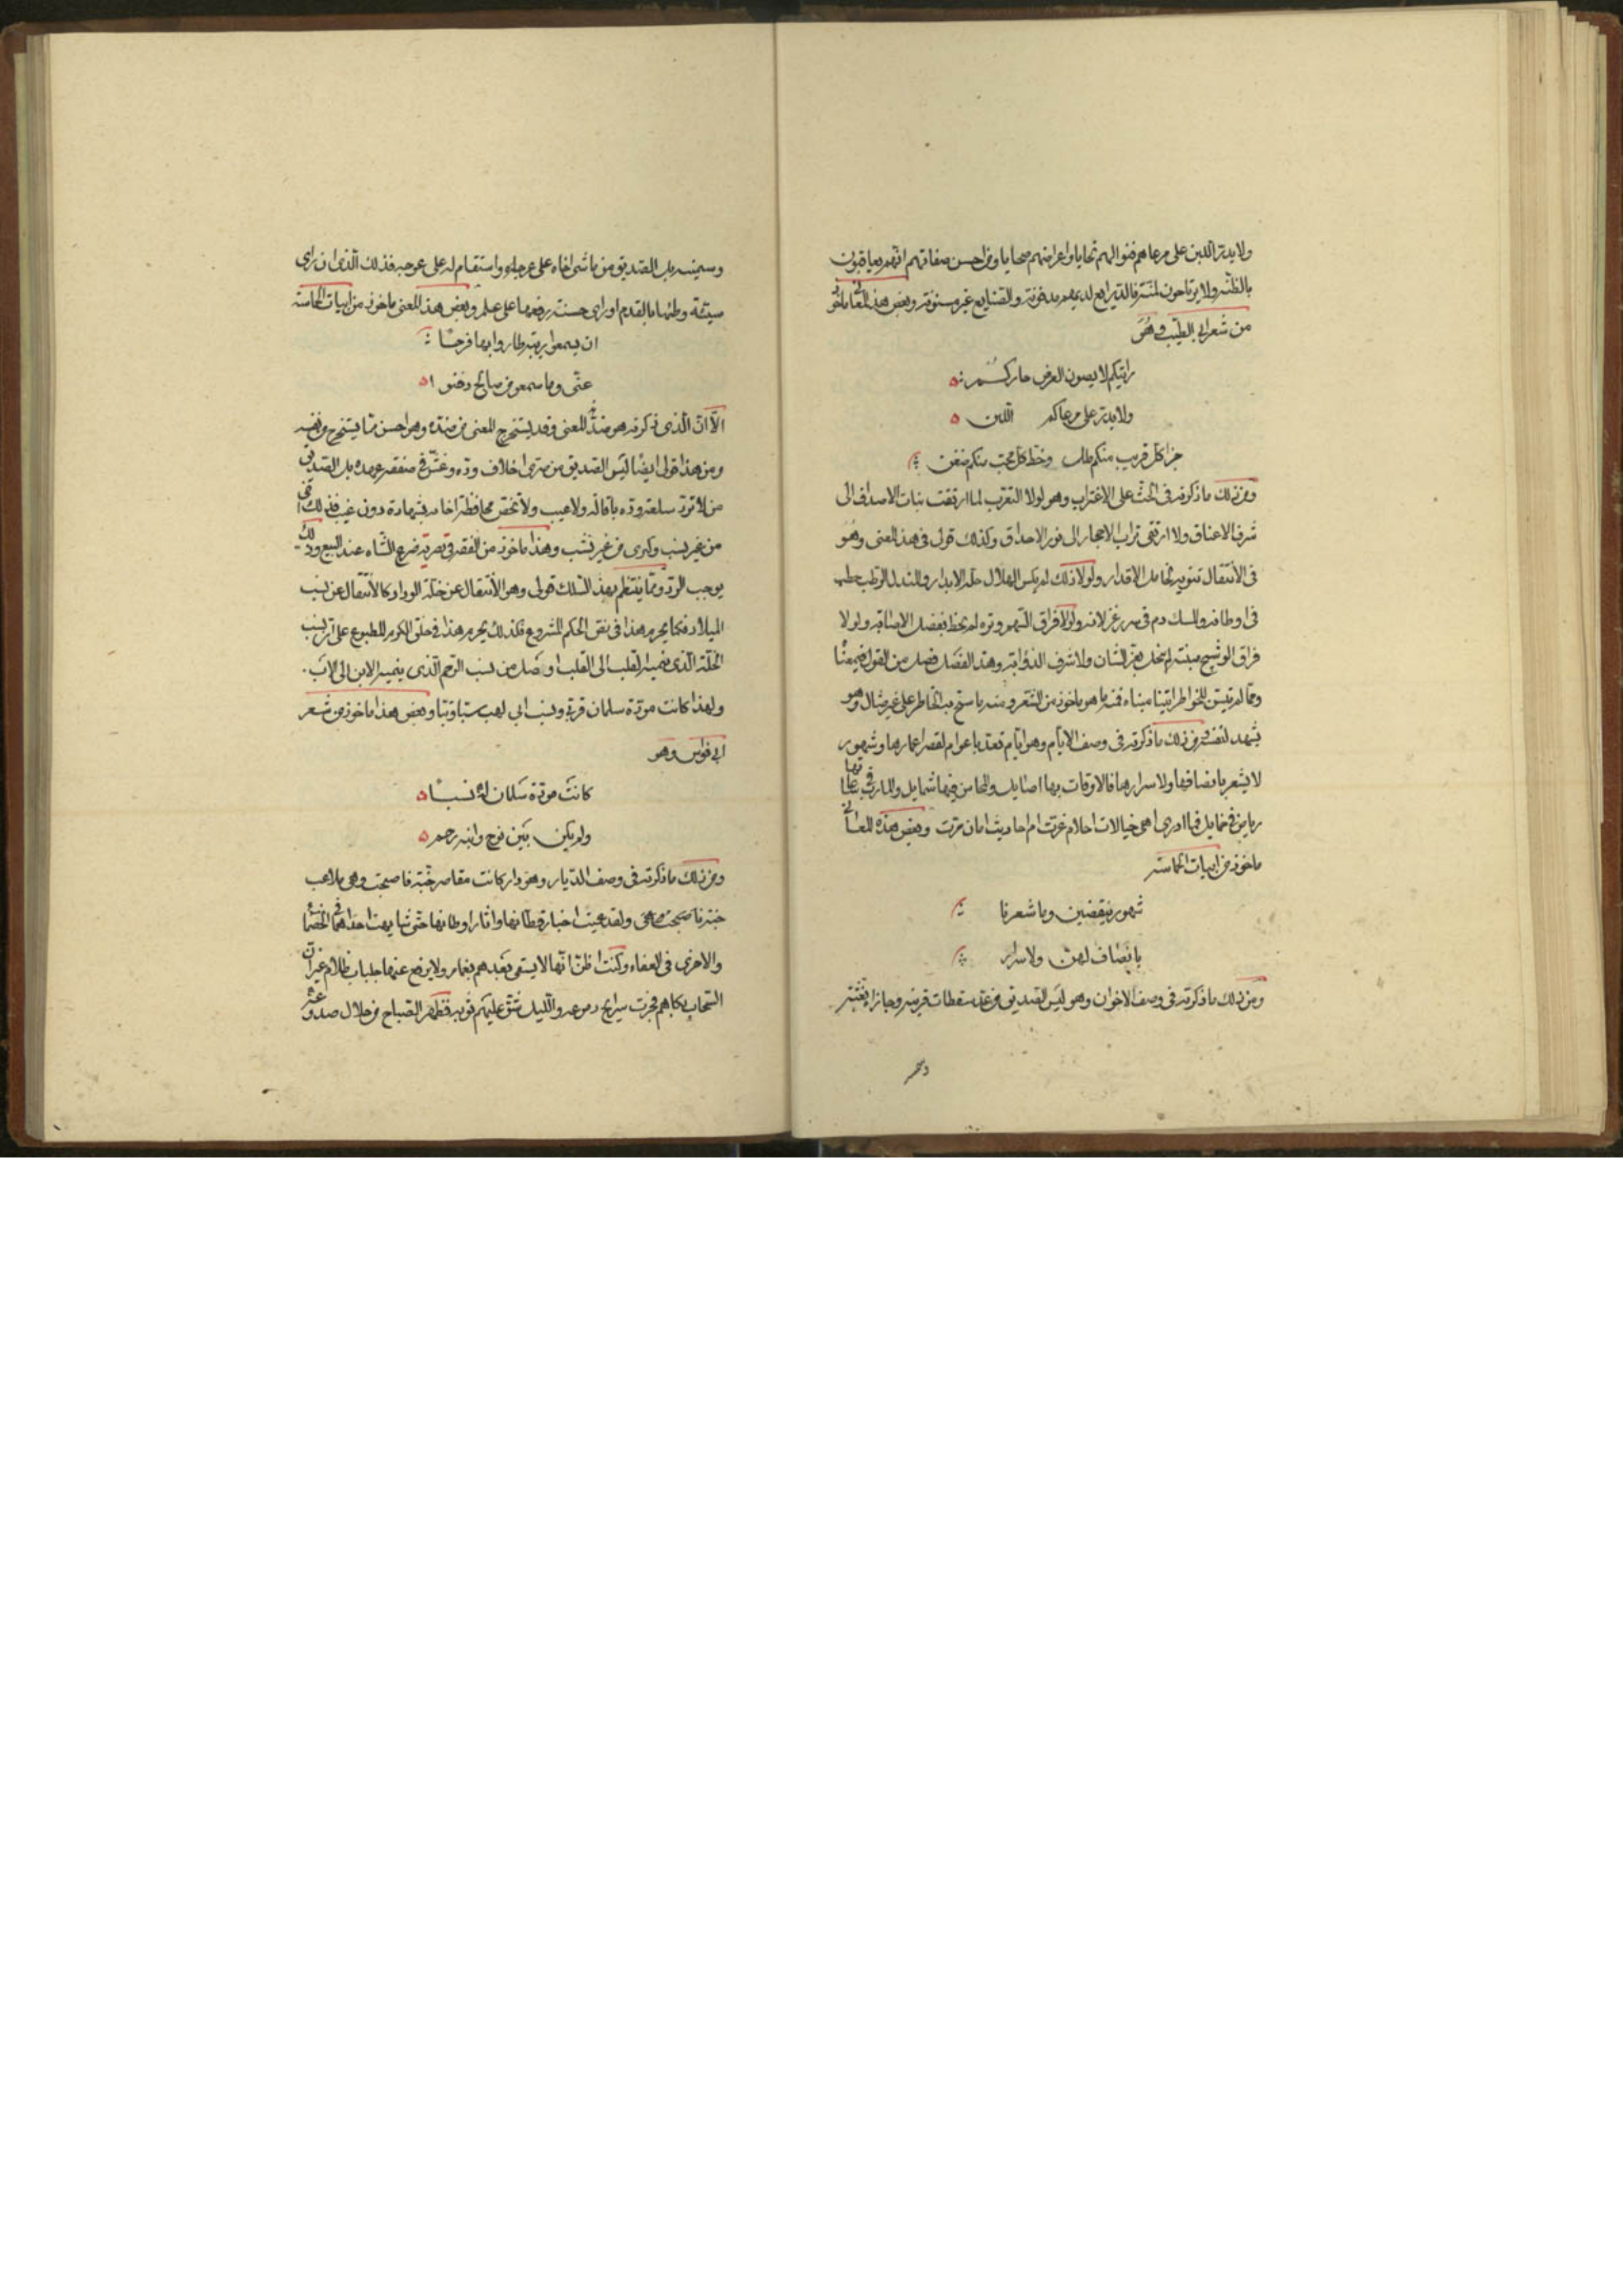 ولا يدر اللبن على مرعاهم فنوالهم تحايا واعراضهم ضحايا ومن احسن صفاتهم انهم يعاقبون
بالظنه ولا يرتاحون لمنة فالذرايع لديهم مدفونة والصنايع غير مسنونة وبعض هذه المعانى ماخوذ
من شعر ابى الطيب وهو
رايتكم لا يصون العرض جاركم
ولا يدر على مرعاكم اللبن
جزا كل قريب منكم ملل وحظ كل محب منكم ضغن
ومن ذلك ما ذكرته فى الحث على الاغتراب وهو لولا التغرب لما ارتقت بنات الاصداف الى
شرف الاعناق ولا ارتقى تراب الاحجار الى نور الاحداق وكذلك قولى فى هذا المعنى وهو
فى الانتقال تنويه لخامل الاقدار ولولا ذلك لم يكس الهلال حلة الابدار والمندل الرطب حطب
فى اوطانه والمسك دم فى سرر غزلانه ولولا فراق السهم وتره لم يحظ بفضل الاصابة ولولا
فراق الوشيج منبته لم يتحل بعز السنان ولا شرف الذؤابة وهذا الفصل فصل من القول فى معناه
ومما لم يتيسر للخواطر ابتنا مبناه فمنه ما هو ماخوذ من الشعر ومنه ما سمح به الخاطر على غير مثال وهو
يشهد لنفسه ومن ذلك ما ذكرته فى وصف الايام وهو ايام تعد باعوام لقصر اعمارها وشهور
لا يشعر بانصافها ولا سرارها فالاوقات بها اصايل والمحاسن فيها شمايل والمآرب فى ساعاتها
رياض فى خمايل فما ادرى اهى خيالات احلام غرت ام احاديث امان مرت وبعض هذه المعانى
ماخوذ من ابيات الحماسة
شهور ينقضين وما شعرنا
بانصاف لهن ولا سرار
ومن ذلك ما ذكرته فى وصف الاخوان وهو ليس الصديق من عد سقطات قرينه وجازاه بغثه
وسمينه بل الصديق من ماشى اخاه على عرجه واستقام له على عوجه فذلك الذى ان راى
سيئة وطئها بالقدم او راى حسنة رفعها على علم وبعض هذا المعنى ماخوذ من ابيات الحماسة
ان يسمعوا ريبة طاروا بها فرحا
عنى وما سمعوا من صالح دفنوا
الا ان الذى ذكرته هو ضد المعنى وقد يستخرج المعنى من ضده وهو احسن مما يستخرج من نفسه
ومن هذا قولى ايضا ليس الصديق من صرى اخلاف وده وغش فى صفقة عهده بل الصديق
من لا ترد سلعة وده باقالة ولا عيب ولا تختص محافظة اخائه بشهادة دون غيب فذلك اخى
من غير نسب وكنزى من غير نشب وهذا ماخوذ من الفقه فى تصرية ضرع الشاه عند البيع وذلك
يوجب الرد ومما ينتظم بهذا السلك قولى وهو الانتقال عن خلة الوداد كالانتقال عن نسب
الميلاد فكما يحرم هذا فى نص الحكم المشروع فكذلك يحرم هذا فى خلق الكرم المطبوع على ان نسب
الخلة الذى نميه القلب الى القلب اوصل من نسب الرحم الذى ينميه الابن الى الاب
ولهذا كانت مودة سلمان قربى ونسب ابى لهب سبا وتبا وبعض هذا ماخوذ من شعر
ابى فراس وهو
كانت مودة سلمان له نسبا
ولم يكن بين نوح وابنه رحم
ومن ذلك ما ذكرته فى وصف الديار وهو دار كانت مقاصر جنة فاصبحت وهى ملاعب
جنة ولقد عميت اخبار قطانها واثار اوطانها حتى شابهت احداهما فى الخفاء
والاخرى فى العفاء وكنت اظن انها لا يسقى بعدهم بغمام ولا يرفع عنها جلباب ظلام غير ان
السحاب بكاهم فجرت سريح دموعه والليل شق عليهم ثوبه فظهر الصباح من خلال صدوعه